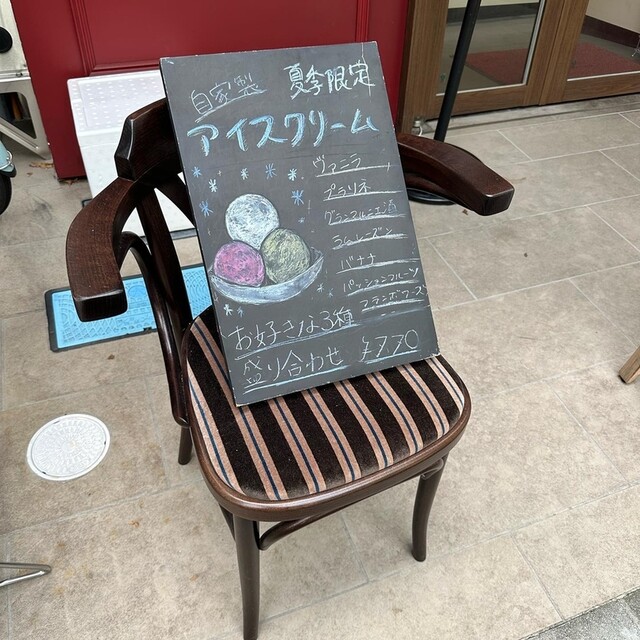 自家製 夏季限定
アイスクリーム
ヴァニラ
プラリネ
グランマルニエ酒
ラムレーズン
バナナ
パッションフルーツ
フランボワーズ
お好きな3種
盛り合わせ ¥770